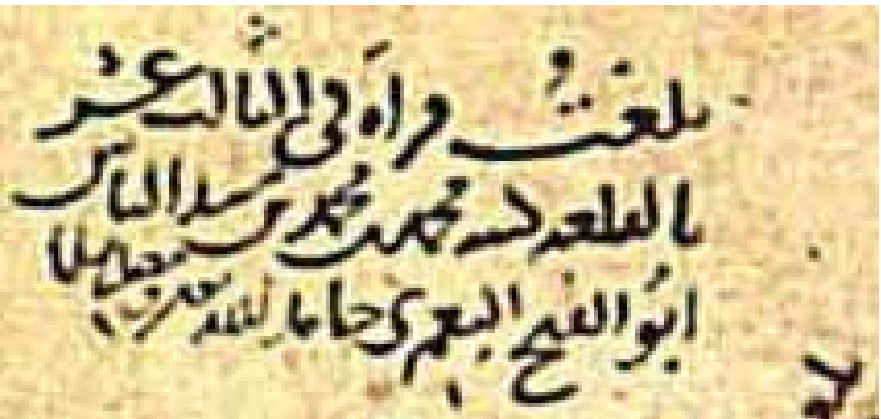 بلغت قراءة في الثالث عشر
بالقلعة كتبه محمد بن محمد بن سيد الناس
أبو الفتح اليعمري حامدا لله